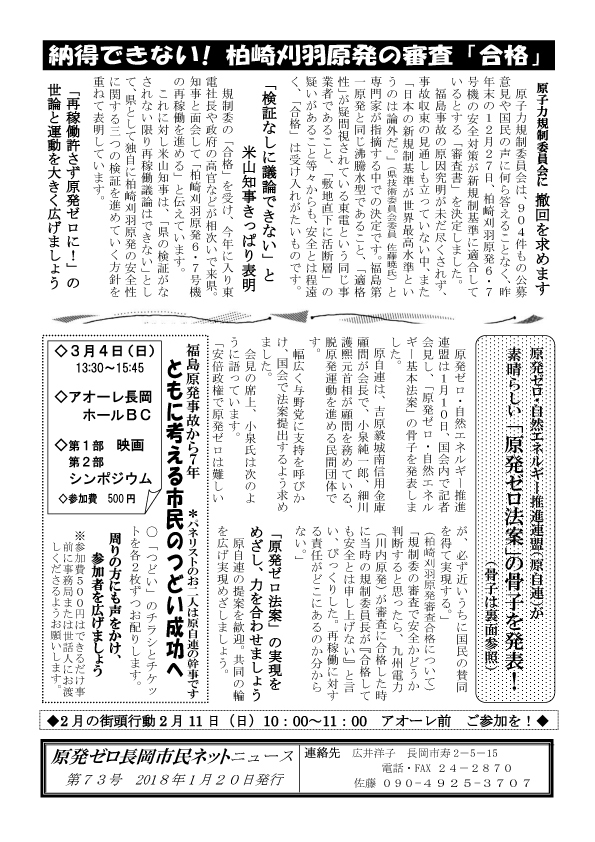 納得できない！ 柏崎刈羽原発の審査「合格」
原子力規制委員会に 撤回を求めます
原子力規制委員会は、904件もの公募
意見や国民の声に何ら答えることなく、昨
年末の12月27日、柏崎刈羽原発6・7
号機の安全対策が新規制基準に適合して
いるとする「審査書」を決定しました。
福島事故の原因究明が未だ尽くされず、
事故収束の見通しも立っていない中、また
「日本の新規制基準が世界最高水準とい
うのは論外だ。」（県技術委員会委員 佐藤暁氏）と
専門家が指摘する中での決定です。福島第
一原発と同じ沸騰水型であること、「適格
性」が疑問視されている東電という同じ事
業者であること、「敷地直下に活断層」の
疑いがあること等々からも、安全とは程遠
く、「合格」は受け入れがたいものです。
「検証なしに議論できない」と
米山知事きっぱり表明
規制委の「合格」を受け、今年に入り東
電社長や政府の高官などが相次いで来県。
知事と面会して「柏崎刈羽原発6・7号機
の再稼働を進める」と伝えています。
これに対し米山知事は、「県の検証がな
されない限り再稼働議論はできない」とし
て、県として独自に柏崎刈羽原発の安全性
に関する三つの検証を進めていく方針を
重ねて表明しています。
「再稼働許さず原発ゼロに！」の
世論と運動を大きく広げましょう
原発ゼロ・自然エネルギー推進連盟（原自連）が
素晴らしい「原発ゼロ法案」の骨子を発表！
（骨子は裏面参照）
原発ゼロ・自然エネルギー推進
連盟は1月10日、国会内で記者
会見し、「原発ゼロ・自然エネル
ギー基本法案」の骨子を発表しま
した。
原自連は、吉原毅城南信用金庫
顧問が会長で、小泉純一郎、細川
護熙元首相が顧問を務めている、
脱原発運動を進める民間団体で
す。
幅広く与野党に支持を呼びか
け、国会で法案提出するよう求め
ました。
会見の席上、小泉氏は次のよ
うに語っています。
「安倍政権で原発ゼロは難しい
が、必ず近いうちに国民の賛同
を得て実現する。」
「（柏崎刈羽原発審査合格について）
『規制委の審査で安全かどうか
判断すると思ったら、九州電力
（川内原発）が審査に合格した時
に当時の規制委員長が『合格して
も安全とは申し上げない』と言
い、びっくりした。再稼働に対す
る責任がどこにあるのか分から
ない。」
「原発ゼロ法案」の実現を
めざし、力を合わせましょう
原自連の提案を歓迎。共同の輪
を広げ実現めざしましょう。
福島原発事故から7年
ともに考える市民のつどい成功へ
＊パネリストのお二人は原自連の幹事です
◇3月4日（日）
13:30～15:45
◇アオーレ長岡
ホールBC
◇第1部 映画
第2部
シンポジウム
◇参加費 500円
○「つどい」のチラシとチケッ
トを各2枚ずつお配りします。
周りの方にも声をかけ、
参加者を広げましょう
※参加費500円はできるだけ事
前に事務局または世話人にお渡
しくださるようお願いします。
◆2月の街頭行動2月11日（日）10：00～11：00 アオーレ前 ご参加を！◆
原発ゼロ長岡市民ネットニュース
第73号 2018年1月20日発行
連絡先 広井洋子 長岡市寿2-5-15
電話・FAX 24-2870
佐藤 090-4925-3707